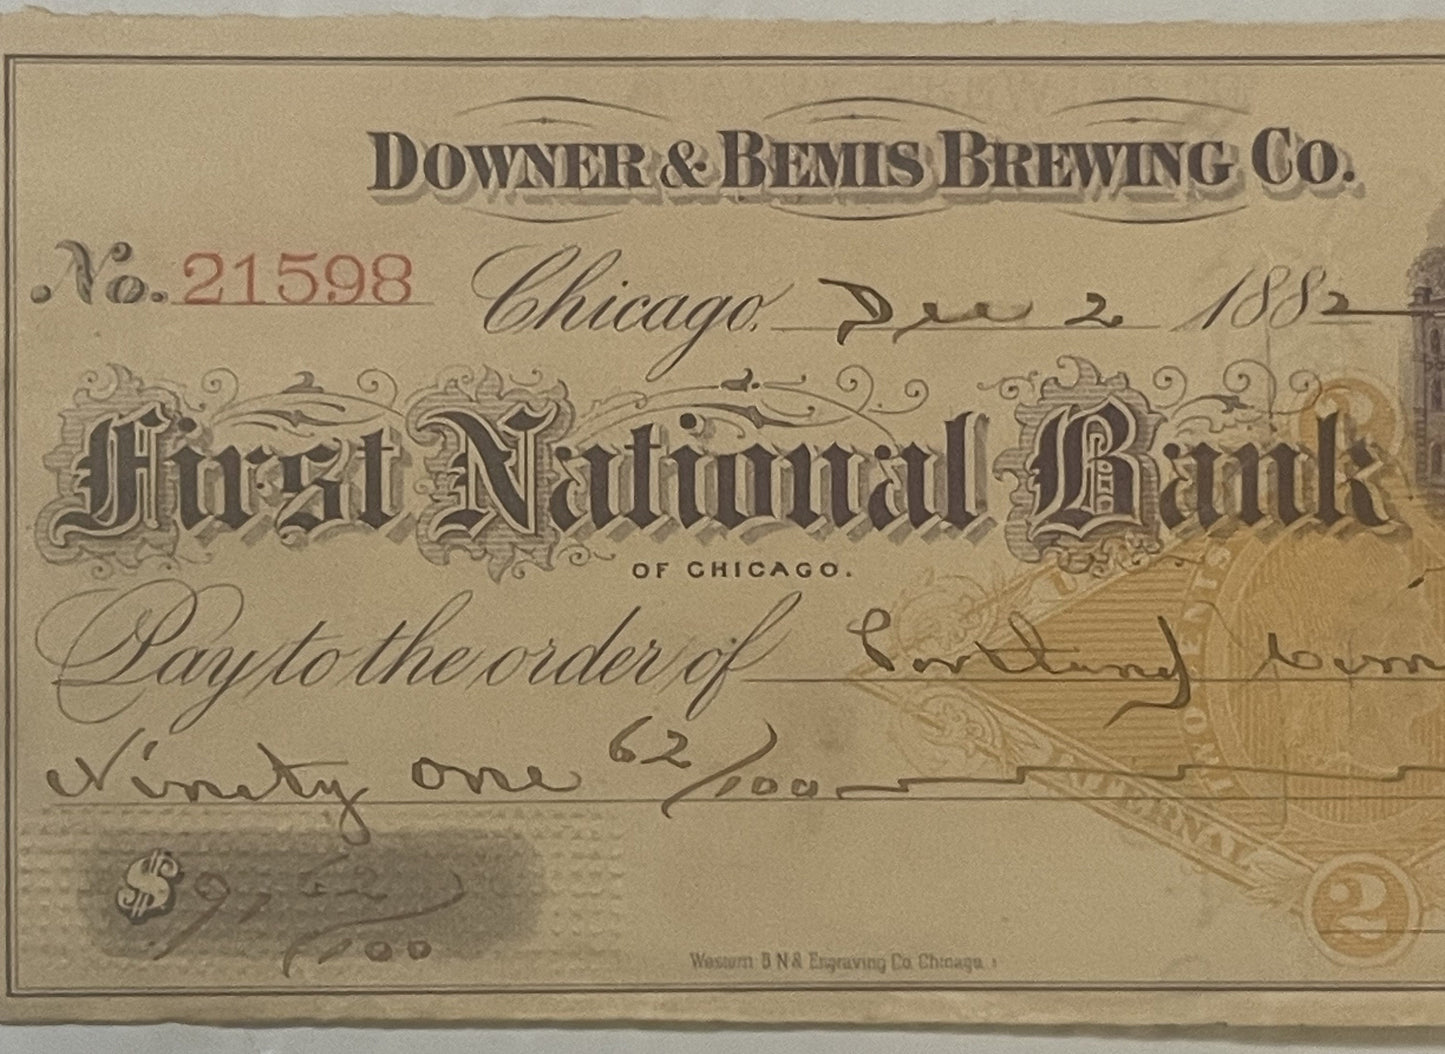 DOWNER & BEMIS BREWING CO.
No. 21598 Chicago, Dec 2 1882
First National Bank
OF CHICAGO.
Pay to the order of
Ninety one 62/100
$ 91,62/100
INTERNAL
2
Western B N & Engraving Co. Chicago.